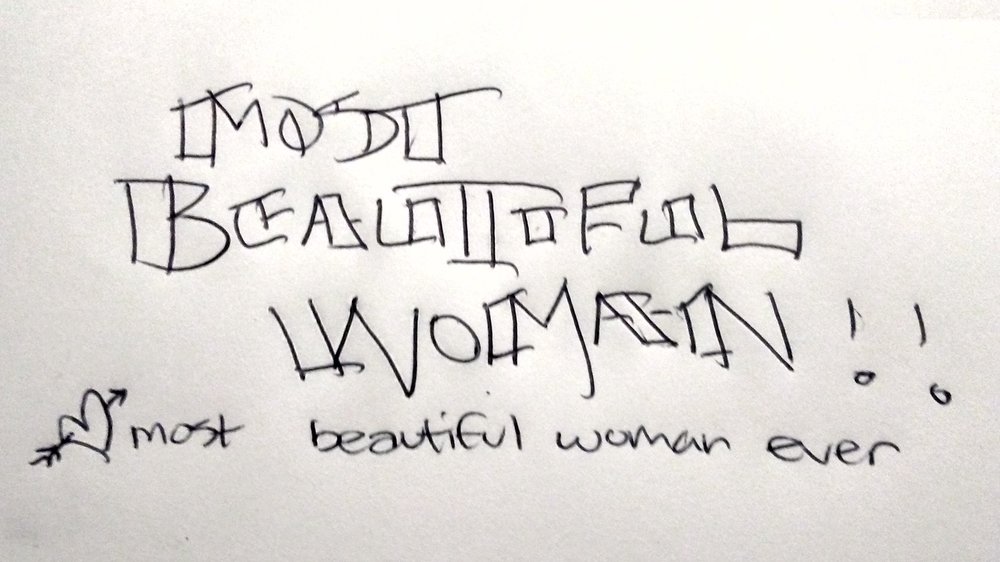 MOST
BEAUTIFUL
WOMAN!!
most beautiful woman ever